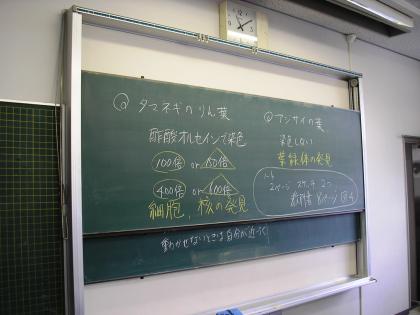 ◎タマネギのりん葉
酢酸オルセインで染色
100倍 or 150倍
400倍 or 600倍
細胞、核の発見
◎アジサイの葉
染色しない
葉緑体の発見
ノート
2ページ スケッチ 2つ
教科書 ページ 図4
動かせないときは自分が近づく!